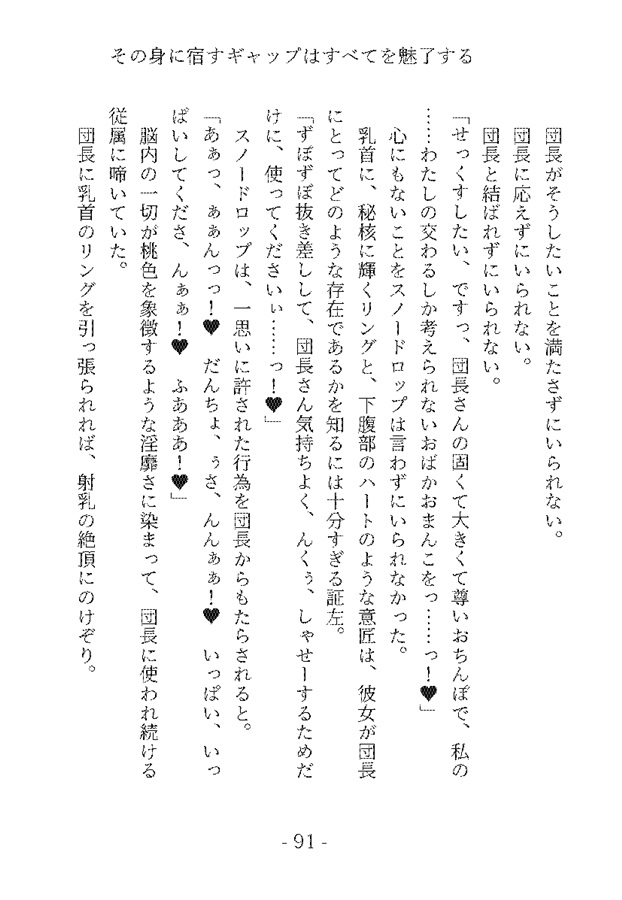 その身に宿すギャップはすべてを魅了する
団長がそうしたいことを満たさずにいられない。
団長に応えずにいられない。
団長と結ばれずにいられない。
「せっくすしたい、ですっ、団長さんの固くて大きくて尊いおちんぽで、私の
……わたしの交わるしか考えられないおばかおまんこをっ……っ！♥」
心にもないことをスノードロップは言わずにいられなかった。
乳首に、秘核に輝くリングと、下腹部のハートのような意匠は、彼女が団長
にとってどのような存在であるかを知るには十分すぎる証左。
「ずぽずぽ抜き差しして、団長さん気持ちよく、んくぅ、しゃせーするためだ
けに、使ってくださいぃ……っ！♥」
スノードロップは、一思いに許された行為を団長からもたらされると。
「あぁっ、ぁぁんっっ！♥　だんちょ、ぅさ、んんぁぁ！♥　いっぱい、いっ
ぱいしてくださ、んぁぁ！♥　ふあああ！♥」
脳内の一切が桃色を象徴するような淫靡さに染まって、団長に使われ続ける
従属に啼いていた。
団長に乳首のリングを引っ張られれば、射乳の絶頂にのけぞり。
- 91 -